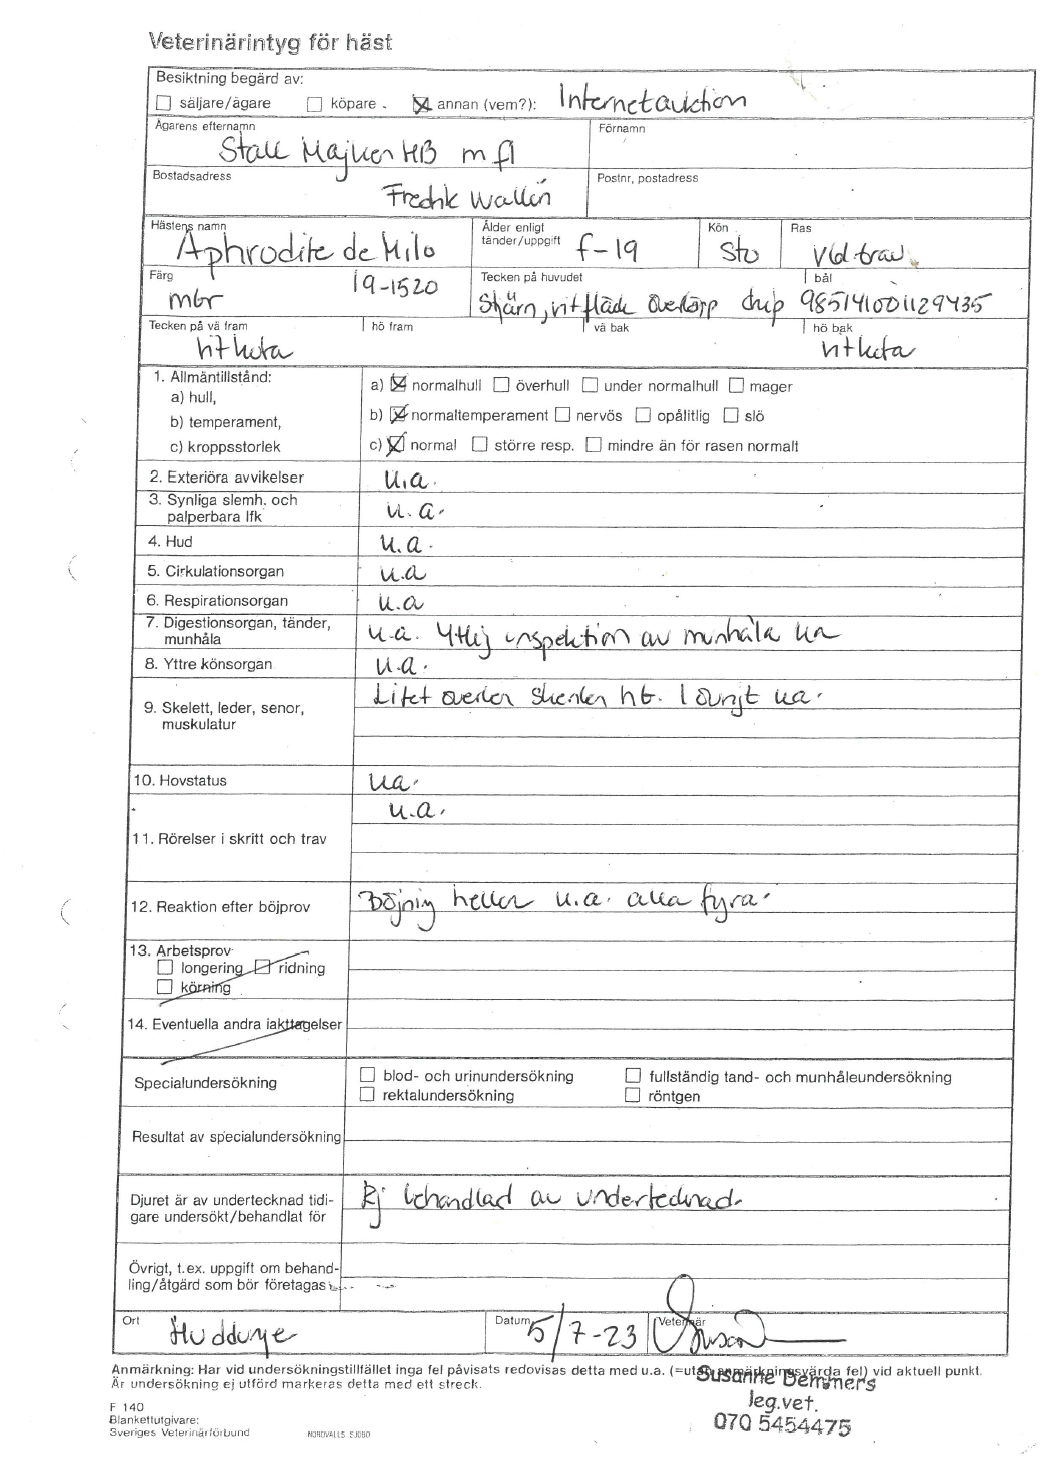 Veterinärintyg för häst
Besiktning begärd av:
☐ säljare/ägare ☐ köpare ☒ annan (vem?): Internetauktion
Ägarens efternamn Förnamn
Stall Majker HB m fl
Bostadsadress Postnr, postadress
Fredrik Wallén
Hästens namn Ålder enligt tänder/uppgift Kön Ras
Aphrodite de Milo f-19 Sto Vbl trav
Färg Tecken på huvudet bål
mbr 19-1520 Stjärn, vit fläck överläpp chip 985141001129435
Tecken på vä fram hö fram vä bak hö bak
vit kota vit kota
1. Allmäntillstånd:
a) hull, a) ☒ normalhull ☐ överhull ☐ under normalhull ☐ mager
b) temperament, b) ☒ normaltemperament ☐ nervös ☐ opålitlig ☐ slö
c) kroppsstorlek c) ☒ normal ☐ större resp. ☐ mindre än för rasen normalt
2. Exteriöra avvikelser u.a.
3. Synliga slemh. och palperbara lfk u.a.
4. Hud u.a.
5. Cirkulationsorgan u.a
6. Respirationsorgan u.a
7. Digestionsorgan, tänder, munhåla u.a. Ytlig inspektion av munhåla ua
8. Yttre könsorgan u.a.
9. Skelett, leder, senor, muskulatur Litet överben skenben hb. I övrigt ua.
10. Hovstatus ua.
11. Rörelser i skritt och trav u.a.
12. Reaktion efter böjprov Böjning heller u.a. alla fyra.
13. Arbetsprov
☐ longering ☐ ridning
☐ körning
14. Eventuella andra iakttagelser
Specialundersökning ☐ blod- och urinundersökning ☐ fullständig tand- och munhåleundersökning
☐ rektalundersökning ☐ röntgen
Resultat av specialundersökning
Djuret är av undertecknad tidi-
gare undersökt/behandlat för Ej behandlad av undertecknad.
Övrigt, t.ex. uppgift om behand-
ling/åtgärd som bör företagas
Ort Datum Veterinär
Huddinge 5/7-23
Anmärkning: Har vid undersökningstillfället inga fel påvisats redovisas detta med u.a. (=utan anmärkningsvärda fel) vid aktuell punkt.
Är undersökning ej utförd markeras detta med ett streck.
Susanne Demmers
leg.vet.
070 5454475
F 140
Blankettutgivare:
Sveriges Veterinärförbund NORDVALLS SJÖBO